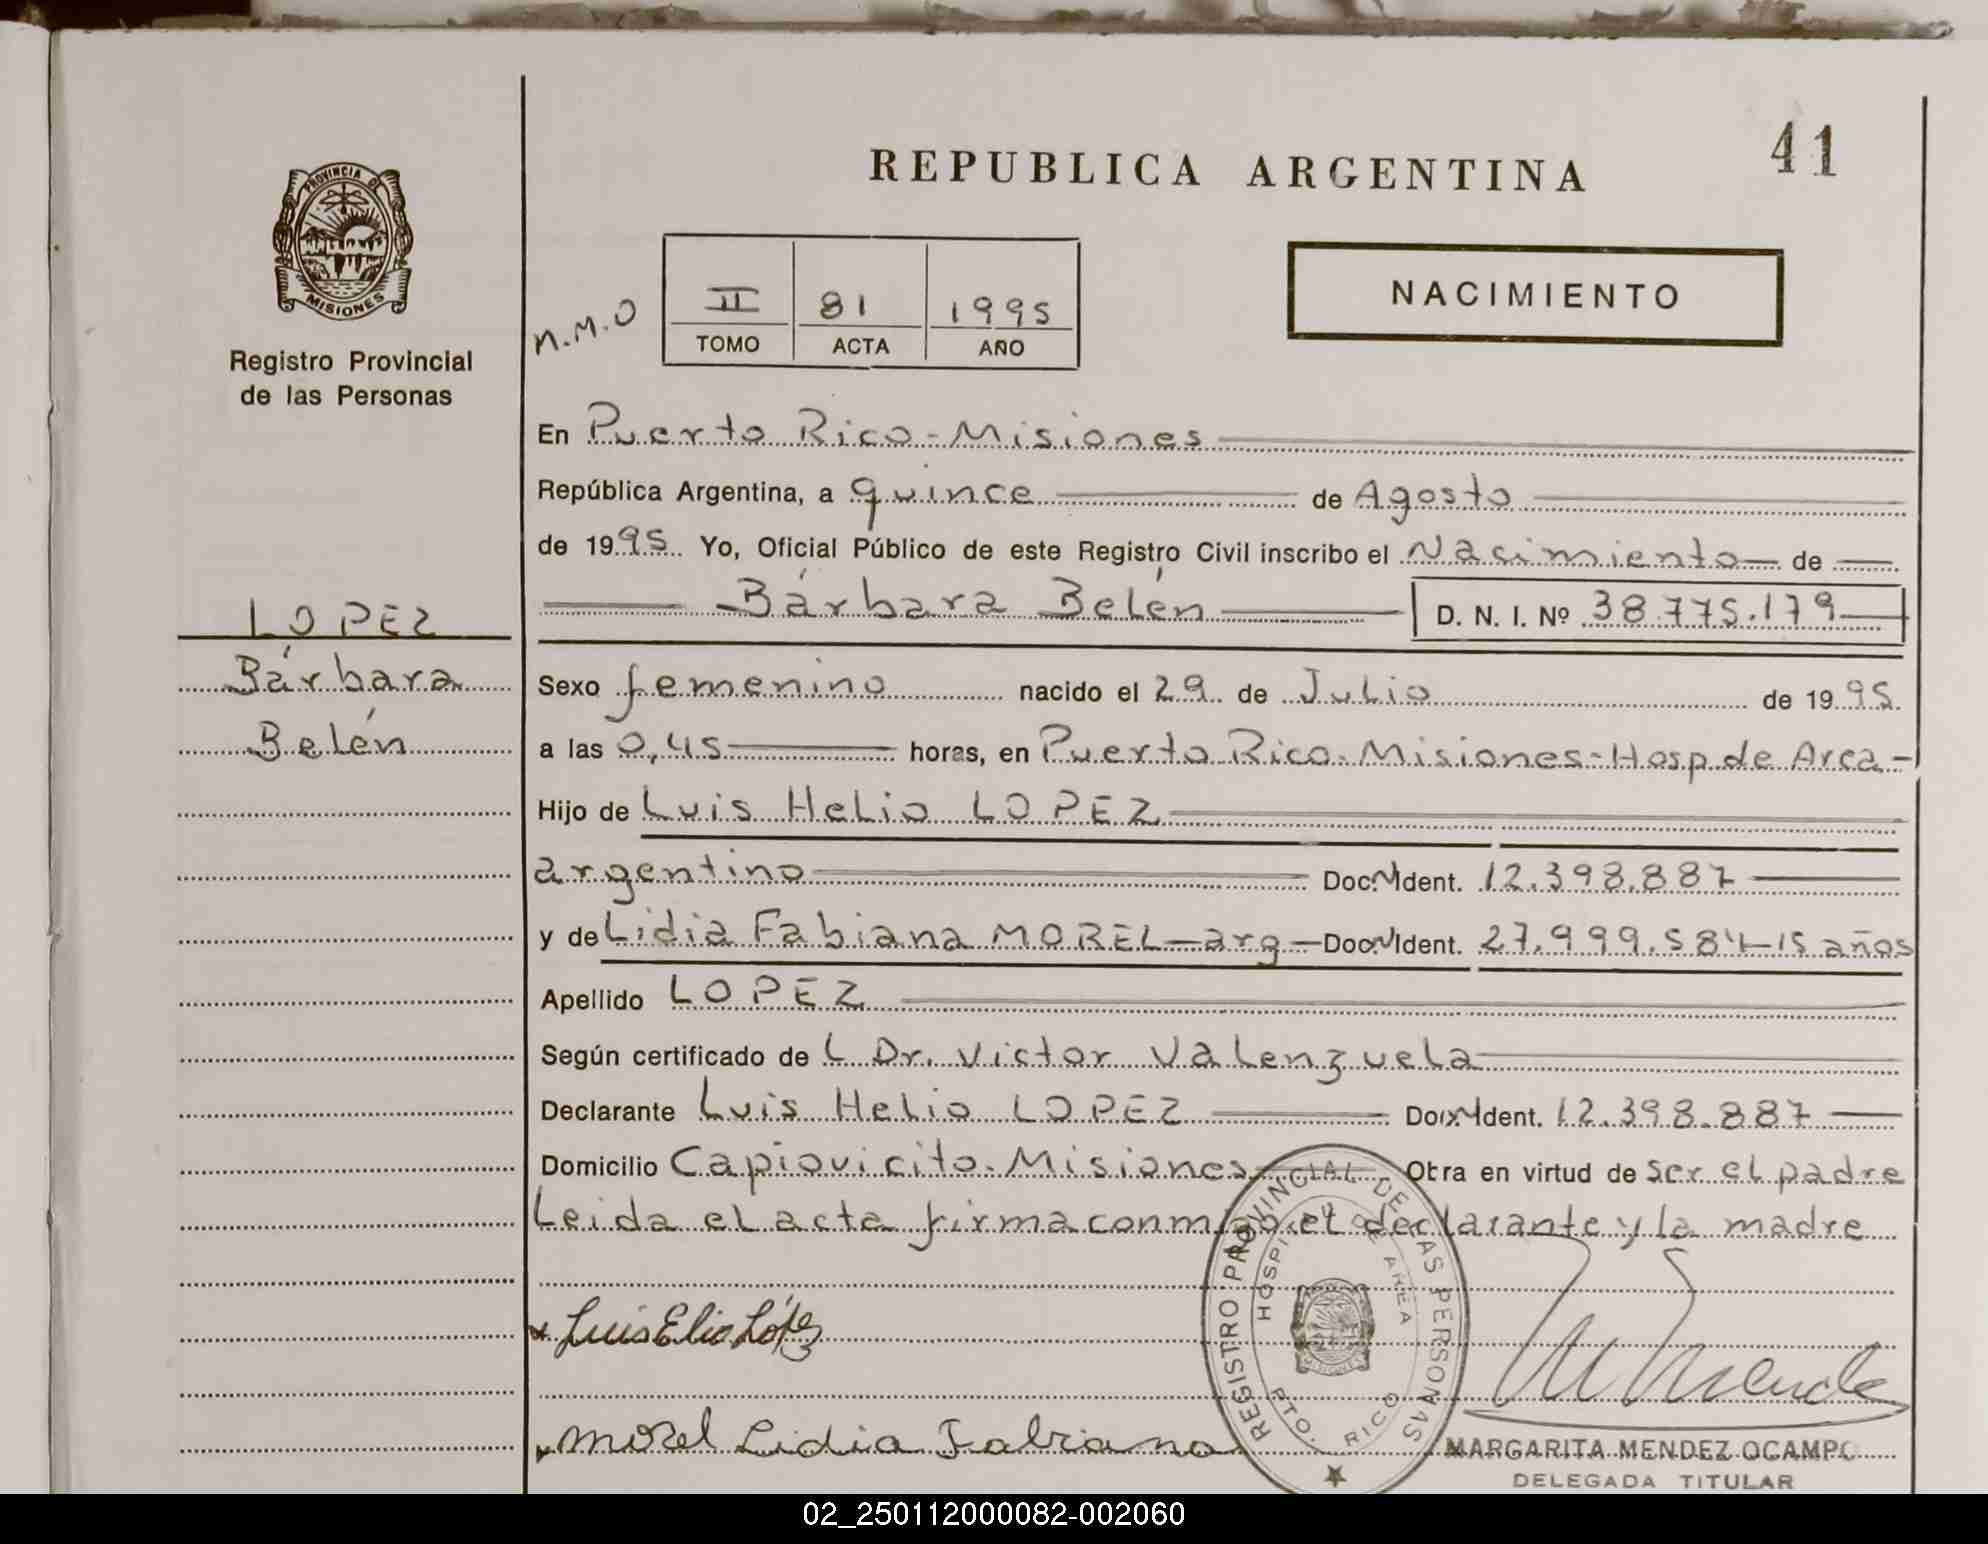 41
REPUBLICA ARGENTINA
PROVINCIA DE
MISIONES
Registro Provincial
de las Personas
N.M.O
II 81 1995
TOMO ACTA AÑO
NACIMIENTO
En Puerto Rico - Misiones
República Argentina, a quince de Agosto
de 1995 Yo, Oficial Público de este Registro Civil inscribo el Nacimiento de
Bárbara Belén D. N. I. Nº 38.775.179
LOPEZ
Bárbara
Belén
Sexo femenino nacido el 29 de Julio de 1995
a las 0,45 horas, en Puerto Rico. Misiones - Hosp de Area -
Hijo de Luis Helio LOPEZ
argentino Doc. Ident. 12.398.887
y de Lidia Fabiana MOREL - arg - Doc. Ident. 27.999.584 - 15 años
Apellido LOPEZ
Según certificado de L Dr. Victor Valenzuela
Declarante Luis Helio LOPEZ Doc. Ident. 12.398.887
Domicilio Capiovicito. Misiones Obra en virtud de ser el padre
Leida el acta firma conmigo el declarante y la madre
Luis Elio López
Morel Lidia Fabiana
REGISTRO PROVINCIAL DE LAS PERSONAS
HOSPITAL DE AREA
PTO. RICO
MARGARITA MENDEZ OCAMPO
DELEGADA TITULAR
02_250112000082-002060